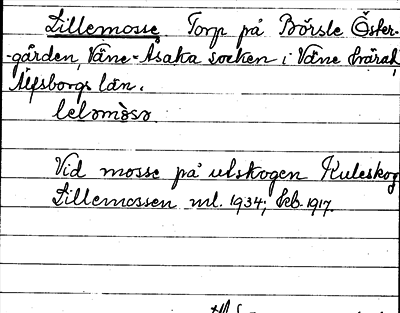 Lillemosse. Torp på Börsle Öster-
-gården, Väne-Åsaka socken i Väne härad,
Älfsborgs län.
leləmòsə.
Vid mosse på utskogen Kuleskog
Lillemossen ml. 1934; Ekb. 1917.